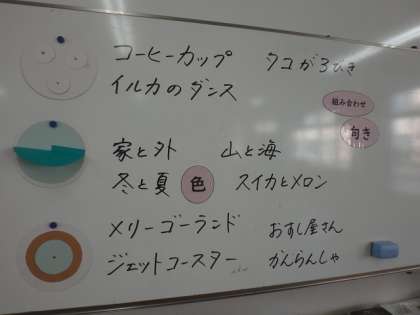 コーヒーカップ　タコが3びき
イルカのダンス
組み合わせ
向き
家と外　山と海
冬と夏　色　スイカとメロン
メリーゴーランド　おすし屋さん
ジェットコースター　かんらんしゃ